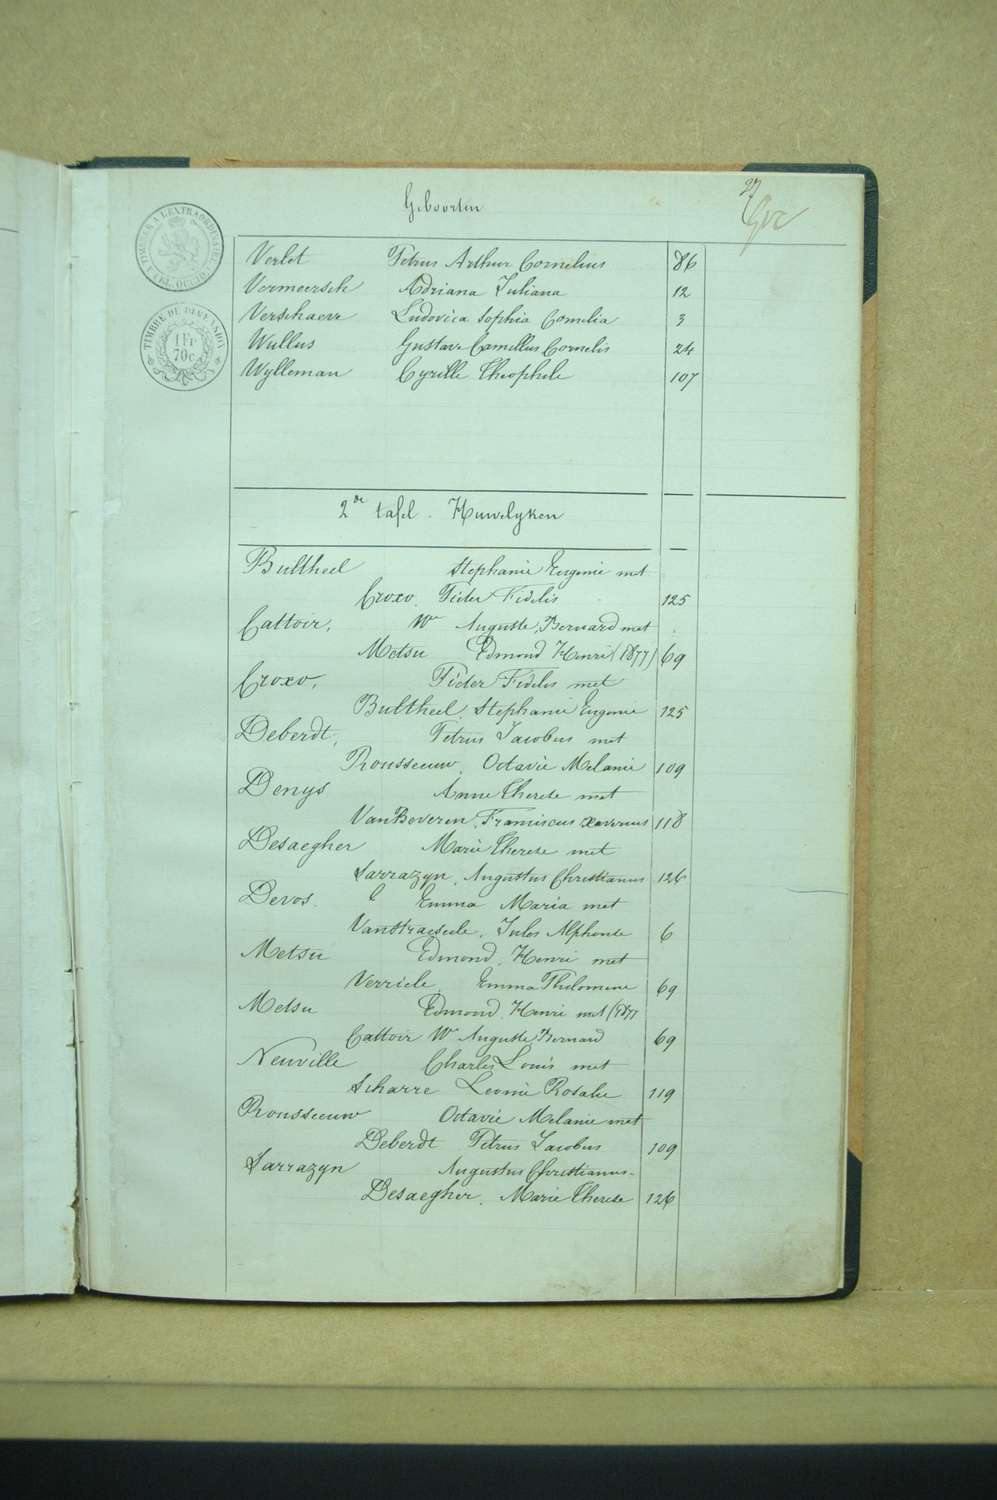 27
Geboorten
TIMBRE A L'EXTRAORDINAIRE
1 Fr
70 c.
Verlet Petrus Arthur Cornelius 86
Vermeersch Adriana Juliana 12
Verschaeve Ludovica Sophia Cornelia 3
Wullus Gustave Camillus Cornelis 24
Wylleman Cyrille Theophile 107
2de tafel. Huwelyken
Bultheel Stephanie Eugenie met
Croxo, Pieter Fidelis 125
Cattoir, We Auguste, Bernard met
Metsu Edmond Henri (1877) 69
Croxo, Pieter Fidelis met
Bultheel, Stephanie Eugenie 125
Deberdt, Petrus Jacobus met
Rousseeuw, Octavie Melanie 109
Denys Anne Therese met
VanBoveren, Franciscus Xaverius 118
Desaegher Marie Therese met
Sarrazyn, Augustus Christianus 126
Devos. Emma Maria met
Vanstraeseele, Jules Alphonse 6
Metsu Edmond, Henri met
Verriele, Emma Philomene 69
Metsu Edmond, Henri met (1877
Cattoir We Auguste Bernard 69
Neuville Charles Louis met
Scharre Leonie Rosalie 119
Rousseeuw Octavie Melanie met
Deberdt Petrus Jacobus 109
Sarrazyn Augustus Christianus-
Desaegher, Marie Therese 126